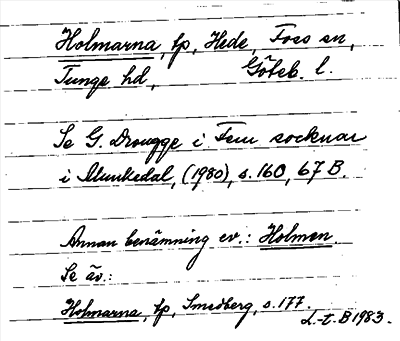 Holmarna, tp, Hede, Foss sn,
Tunge hd, Göteb. l.
Se G. Drougge i Fem socknar
i Munkedal, (1980), s. 160, 67 B.
Annan benämning ev.: Holmen.
Se äv.:
Holmarna, tp, Smedberg, s. 177.
L.-t. B 1983.